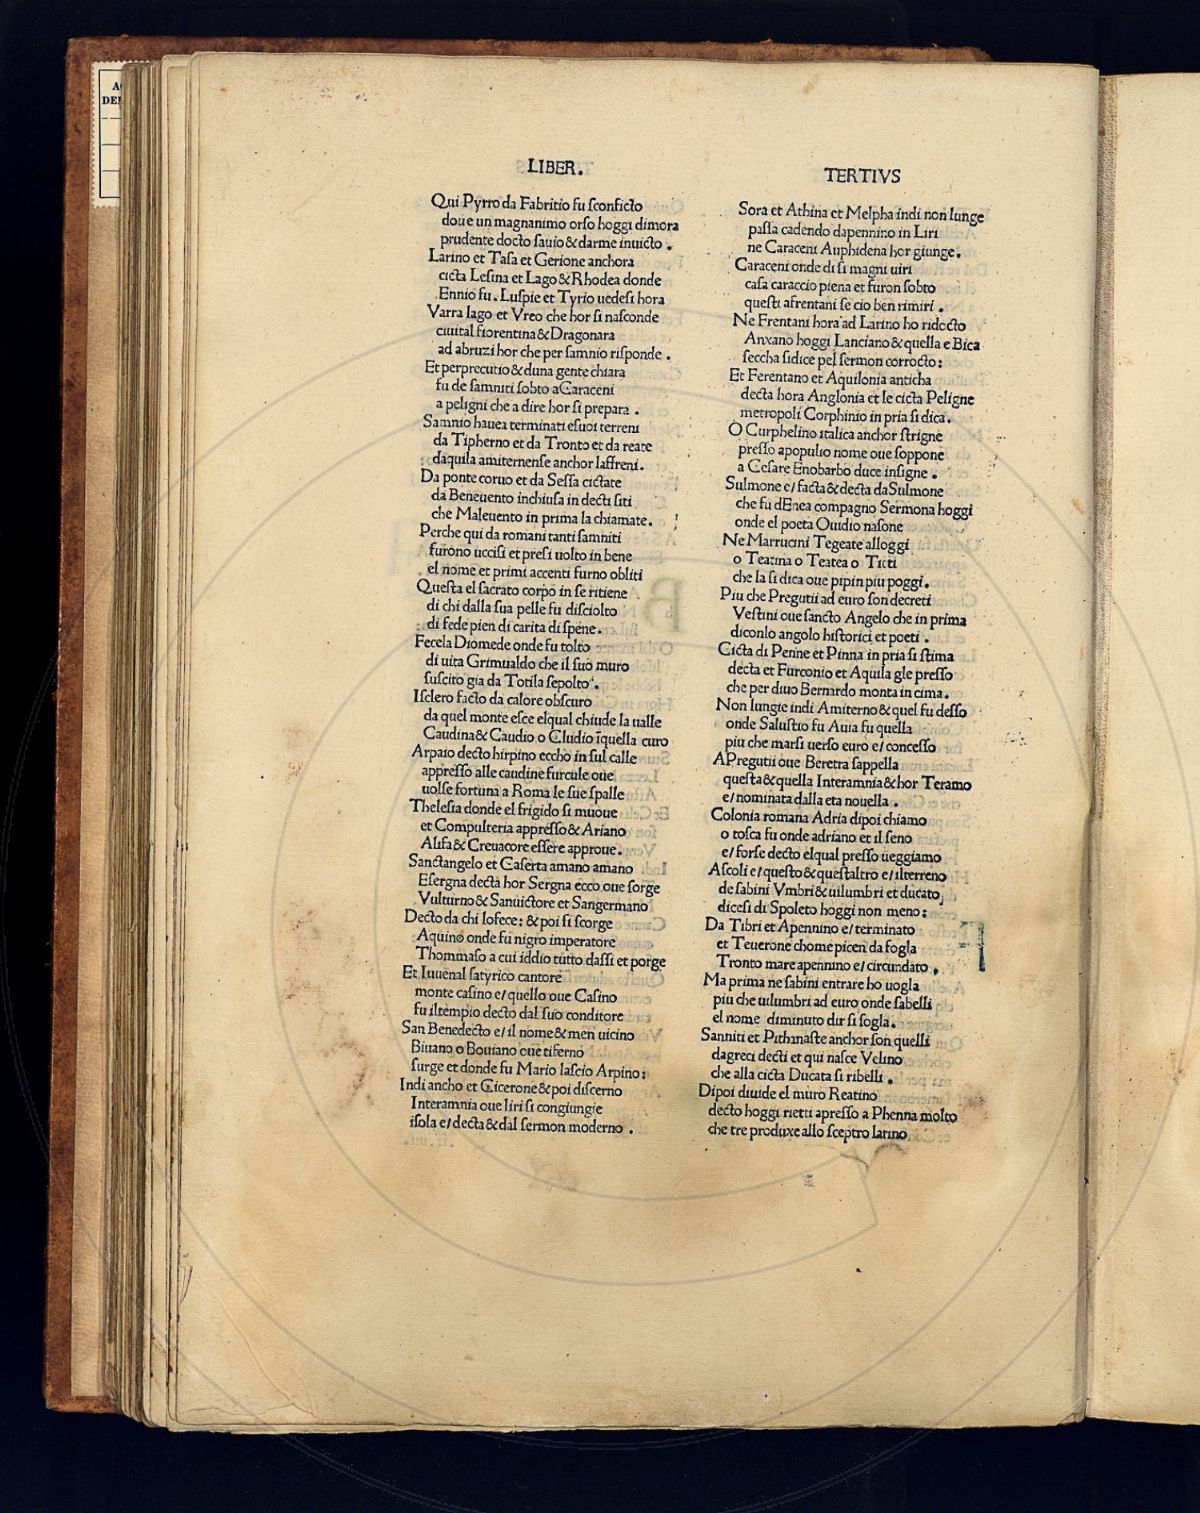 A
DE
LIBER.
Qui Pyrro da Fabritio fu sconficto
doue un magnanimo orso hoggi dimora
prudente docto sauio & darme inuicto .
Larino et Tasa et Gerione anchora
cicta Lesina et Lago & Rhodea donde
Ennio fu . Luspie et Tyrio uedesi hora
Varra lago et Vreo che hor si nasconde
ciuital fiorentina & Dragonara
ad abruzi hor che per samnio risponde .
Et perprecutio & duna gente chiara
fu de samniti sobto a Caraceni
a peligni che a dire hor si prepara .
Samnio hauea terminati e suoi terreni
da Tipherno et da Tronto et da reate
daquila amiternense anchor lassreni .
Da ponte coruo et da Sessa cictate
da Beneuento inchiusa in decti siti
che Maleuento in prima la chiamate .
Perche qui da romani tanti samniti
furono uccisi et presi uolto in bene
el nome et primi accenti furno obliti
Questa el sacrato corpo in se ritiene
di chi dalla sua pelle fu disciolto
di fede pien di carita di spene .
Fecela Diomede onde fu tolto
di uita Grimualdo che il suo muro
suscito gia da Totila sepolto .
Isclero facto da calore obscuro
da quel monte esce elqual chiude la ualle
Caudina & Caudio o Cludio īquella curo
Arpaio decto hirpino eccho in sul calle
appresso alle caudine furcule oue
uolse fortuna a Roma le sue spalle
Thelesia donde el frigido si muoue
et Compulteria appresso & Ariano
Alifa & Creuacore essere approue .
Sanctangelo et Caserta amano amano
Esergna decta hor Sergna ecco oue sorge
Vulturno & Sanuictore et Sangermano
Decto da chi lofece : & poi si scorge
Aquino onde fu nigro imperatore
Thommaso a cui iddio tutto dassi et porge
Et Iuuenal satyrico cantore
monte casino e/ quello oue Casino
fu iltempio decto dal suo conditore
San Benedecto e/ il nome & men uicino
Biuano o Bouiano oue tiferno
surge et donde fu Mario lascio Arpino :
Indi ancho et Cicerone & poi discerno
Interamnia oue liri si congiungie
isola e/ decta & dal sermon moderno .
TERTIVS
Sora et Athina et Melpha indi non lunge
passa cadendo dapennino in Liri
ne Caraceni Auphidena hor giunge .
Caraceni onde di si magni uiri
casa caraccio piena et furon sobto
questi afrentani se cio ben rimiri .
Ne Frentani hora ad Larino ho ridocto
Anxano hoggi Lanciano & quella e Bica
seccha sidice pel sermon corrocto :
Et Ferentano et Aquilonia anticha
decta hora Anglonia et le cicta Peligne
metropoli Corphinio in pria si dica .
O Curphelino italica anchor strigne
presso apopulio nome oue soppone
a Cesare Enobarbo duce insigne .
Sulmone e/ facta & decta da Sulmone
che fu dEnea compagno Sermona hoggi
onde el poeta Ouidio nasone
Ne Marrucini Tegeate alloggi
o Teatina o Teatea o Titti
che la si dica oue pipin piu poggi .
Piu che Pregutii ad euro son decreti
Vestini oue sancto Angelo che in prima
diconlo angolo historici et poeti .
Cicta di Penne et Pinna in pria si stima
decta et Furconio et Aquila gle presso
che per diuo Bernardo monta in cima .
Non lungie indi Amiterno & quel fu desso
onde Salustio fu Auia fu quella
piu che marsi uerso euro e/ concesso
A Pregutii oue Beretra sappella
questa & quella Interamnia & hor Teramo
e/ nominata dalla eta nouella .
Colonia romana Adria dipoi chiamo
o tosca fu onde adriano et il seno
e/ forse decto elqual presso ueggiamo
Ascoli e/ questo & questaltro e/ ilterreno
de sabini Vmbri & uilumbri et ducato
dicesi di Spoleto hoggi non meno :
Da Tibri et Apennino e/ terminato
et Teuerone chome picen da fogla
Tronto mare apennino e/ circundato .
Ma prima ne sabini entrare ho uogla
piu che uilumbri ad euro onde sabelli
el nome diminuto dir si sogla .
Sanniti et Pithanaste anchor son quelli
dagreci decti et qui nasce Velino
che alla cicta Ducata si ribelli .
Dipoi diuide el muro Reatino
decto hoggi rietti apresso a Phenna molto
che tre produxe allo sceptro latino